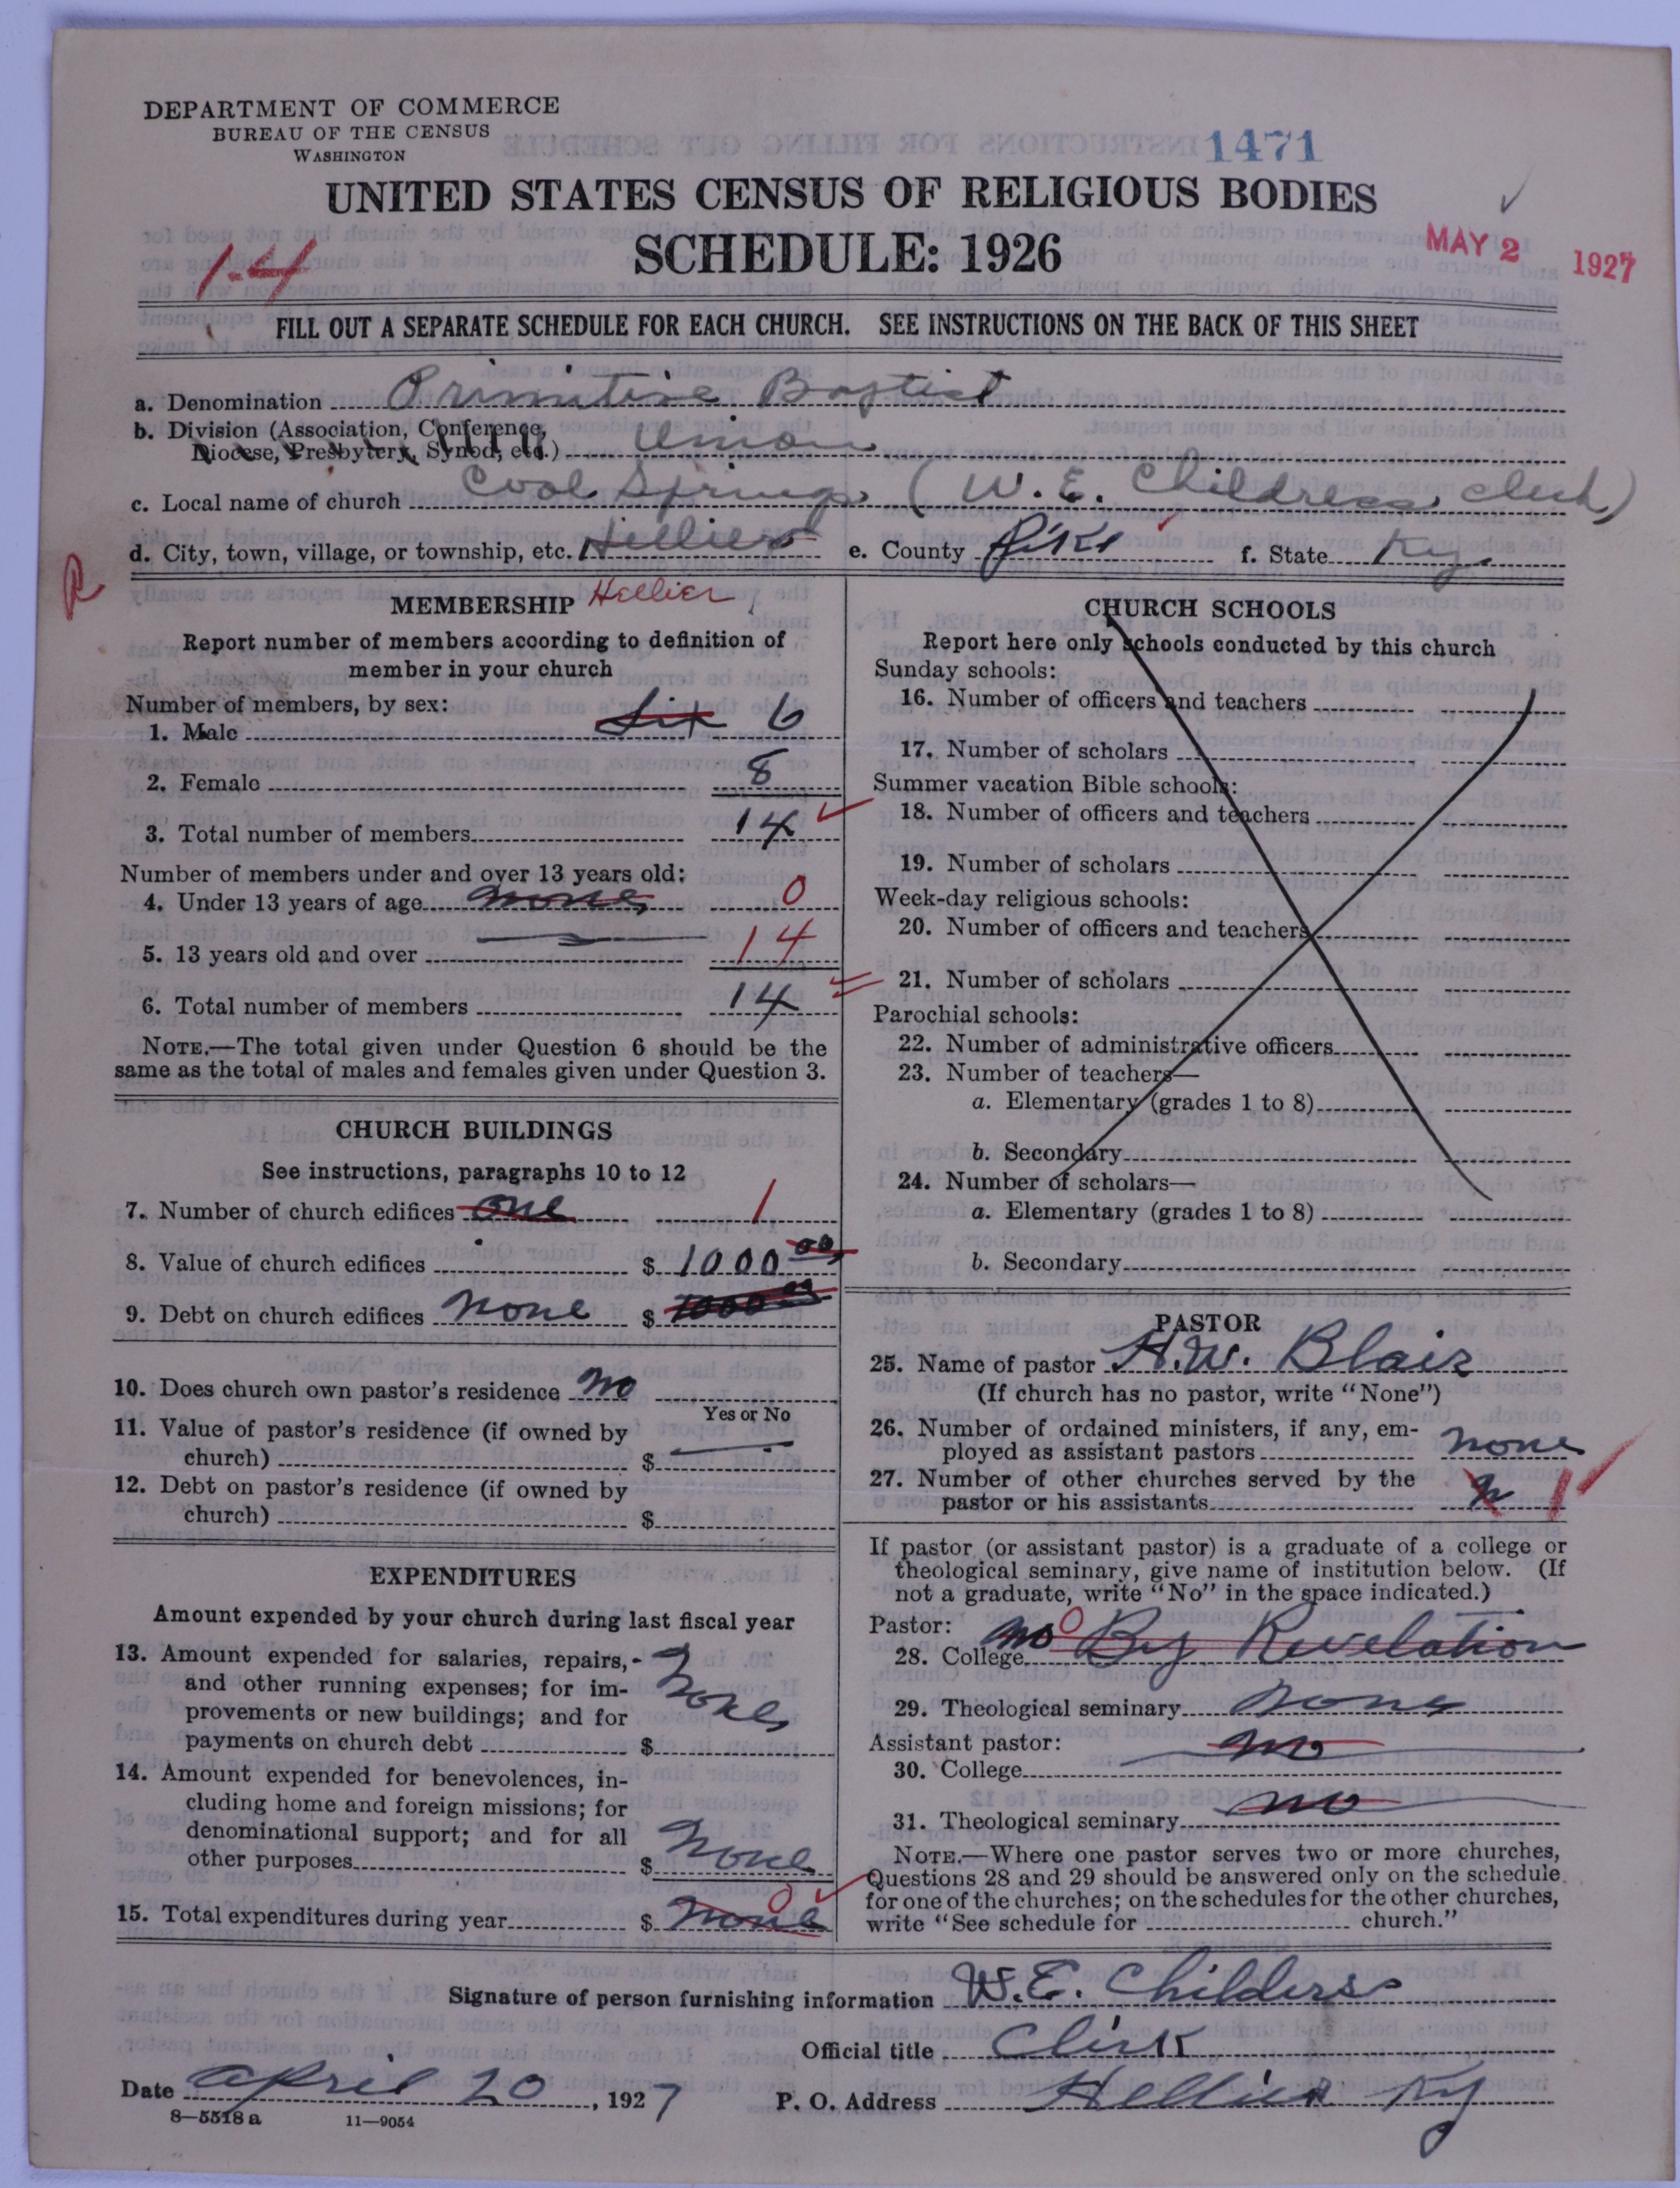 DEPARTMENT OF COMMERCE
BUREAU OF THE CENSUS
WASHINGTON
1471
UNITED STATES CENSUS OF RELIGIOUS BODIES
SCHEDULE: 1926
1-4
MAY 2 1927
FILL OUT A SEPARATE SCHEDULE FOR EACH CHURCH. SEE INSTRUCTIONS ON THE BACK OF THIS SHEET
a. Denomination Primitive Baptist
b. Division (Association, Conference,
Diocese, Presbytery, Synod, etc.) Union
c. Local name of church Cool Springs (W. E. Childress, clerk)
d. City, town, village, or township, etc. Hellier e. County Pike f. State Ky
R
MEMBERSHIP Hellier
Report number of members according to definition of
member in your church
Number of members, by sex:
1. Male Six 6
2. Female 8
3. Total number of members 14
Number of members under and over 13 years old:
4. Under 13 years of age none 0
5. 13 years old and over 14
6. Total number of members 14
NOTE.—The total given under Question 6 should be the
same as the total of males and females given under Question 3.
CHURCH BUILDINGS
See instructions, paragraphs 10 to 12
7. Number of church edifices one 1
8. Value of church edifices $ 1000 00
9. Debt on church edifices none $ 1000 00
10. Does church own pastor's residence no
Yes or No
11. Value of pastor's residence (if owned by
church) $
12. Debt on pastor's residence (if owned by
church) $
EXPENDITURES
Amount expended by your church during last fiscal year
13. Amount expended for salaries, repairs,
and other running expenses; for im-
provements or new buildings; and for
payments on church debt $ None
14. Amount expended for benevolences, in-
cluding home and foreign missions; for
denominational support; and for all
other purposes $ None
15. Total expenditures during year $ None 0
CHURCH SCHOOLS
Report here only schools conducted by this church
Sunday schools:
16. Number of officers and teachers
17. Number of scholars
Summer vacation Bible schools:
18. Number of officers and teachers
19. Number of scholars
Week-day religious schools:
20. Number of officers and teachers
21. Number of scholars
Parochial schools:
22. Number of administrative officers
23. Number of teachers—
a. Elementary (grades 1 to 8)
b. Secondary
24. Number of scholars—
a. Elementary (grades 1 to 8)
b. Secondary
PASTOR
25. Name of pastor H. W. Blair
(If church has no pastor, write "None")
26. Number of ordained ministers, if any, em-
ployed as assistant pastors none
27. Number of other churches served by the
pastor or his assistants 1
If pastor (or assistant pastor) is a graduate of a college or
theological seminary, give name of institution below. (If
not a graduate, write "No" in the space indicated.)
Pastor:
28. College no 0 By Revelation
29. Theological seminary none
Assistant pastor:
30. College no
31. Theological seminary no
NOTE.—Where one pastor serves two or more churches,
Questions 28 and 29 should be answered only on the schedule
for one of the churches; on the schedules for the other churches,
write "See schedule for church."
Signature of person furnishing information W. E. Childers
Official title Clirk
Date april 20, 1927 P. O. Address Hellier Ky
8—5518 a 11—9054